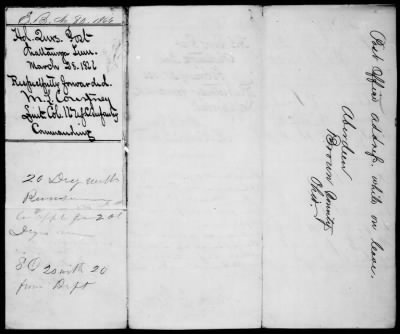 Hd. Qurs. Post
Chattanooga Tenn.
March 28. 1866
Respectfully forwarded.
M. L. Courtney
Lieut. Col. U.S.C. Infantry
Commanding
20 Days with
20
Days
20 with 20
from Dept
Post Office address, while on leave.
Aberdeen
Brown County
Ohio.